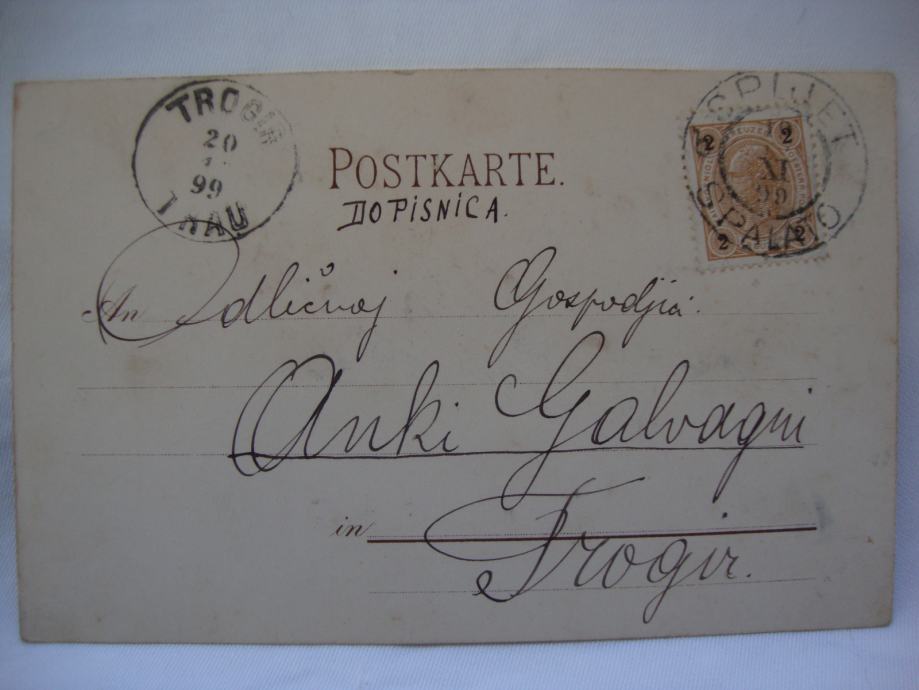 TROGIR
20
99
TRAU
POSTKARTE.
DOPISNICA.
SPLJET
XI
99
SPALATO
2 2
KREUZER
2 2
An Odličnoj Gospodjici
Anki Galvagni
in
Trogir.